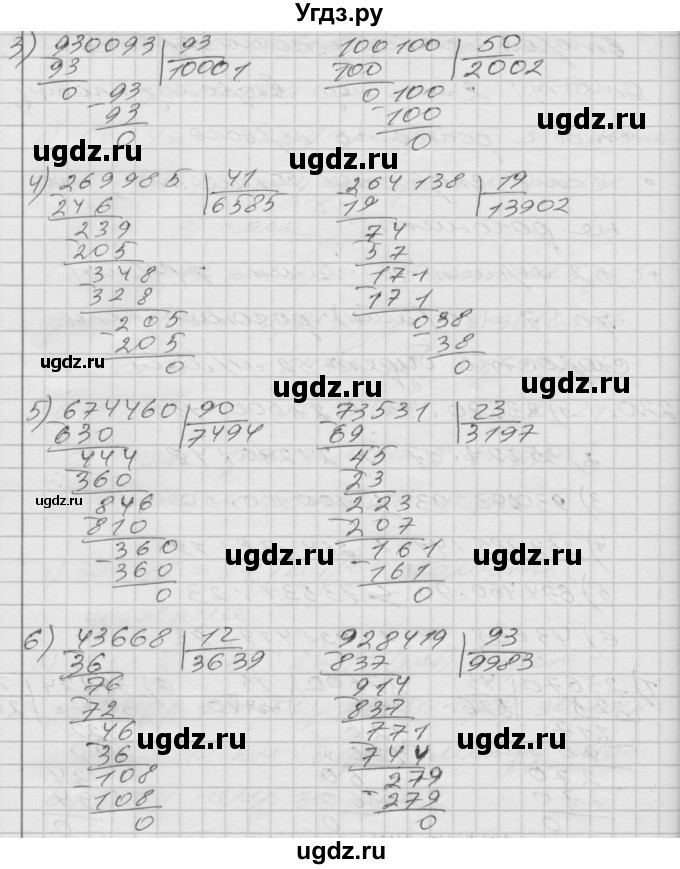 Угдз.ру
3) 930093 | 93
93 | 10001
0 93
93
0
100100 | 50
100 | 2002
0 100
100
0
ugdz.ru ugdz.ru
4) 269985 | 41
246 | 6585
239
205
348
328
205
205
0
264138 | 19
19 | 13902
74
57
171
171
038
38
0
ugdz.ru ugdz.ru ugdz.ru
5) 674460 | 90
630 | 7494
444
360
846
810
360
360
0
73531 | 23
69 | 3197
45
23
223
207
161
161
0
ugdz.ru ugdz.ru ugdz.ru
6) 43668 | 12
36 | 3639
76
72
46
36
108
108
0
928419 | 93
837 | 9983
914
837
771
744
279
279
0
ugdz.ru ugdz.ru
ugdz.ru